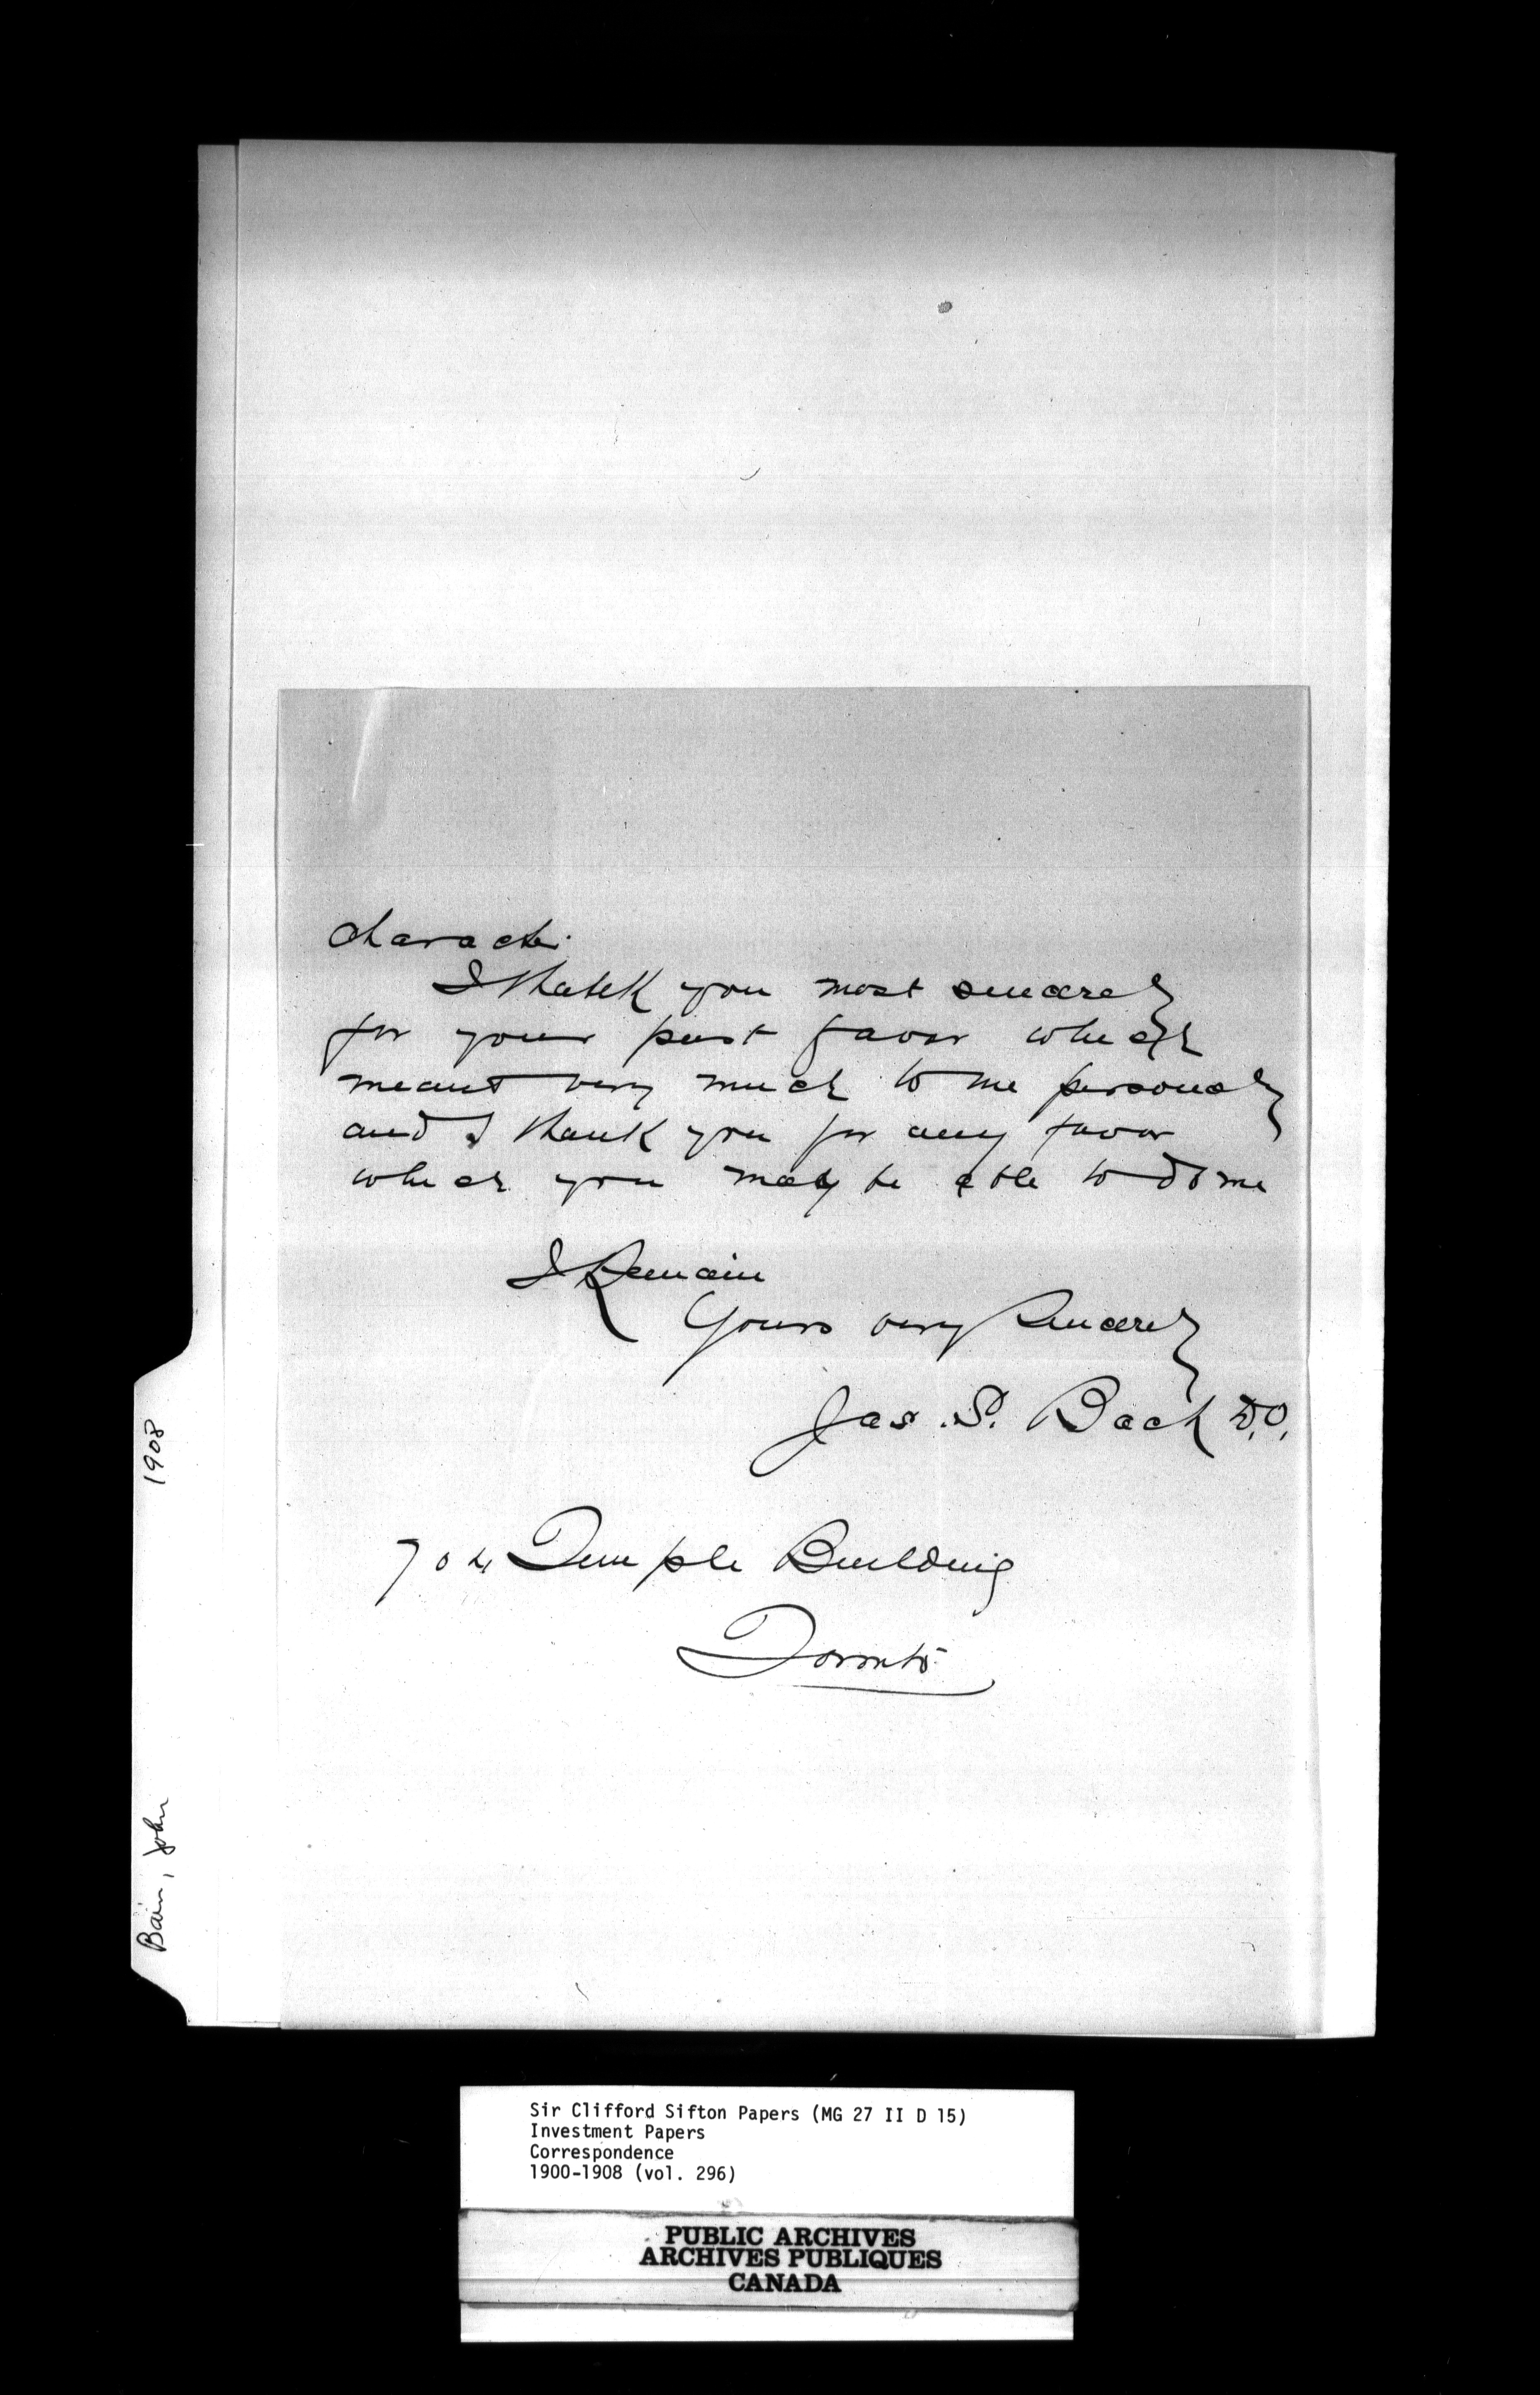 character.
I thank you most sincerely
for your past favor which
meant very much to me personaly
and I thank you for any favor
which you may be able to do me
I Remain
Yours very Sincerely
Jas. S. Bach D.O.
704 Temple Building
Toronto
1908
Bain, John
Sir Clifford Sifton Papers (MG 27 II D 15)
Investment Papers
Correspondence
1900-1908 (vol. 296)
PUBLIC ARCHIVES
ARCHIVES PUBLIQUES
CANADA